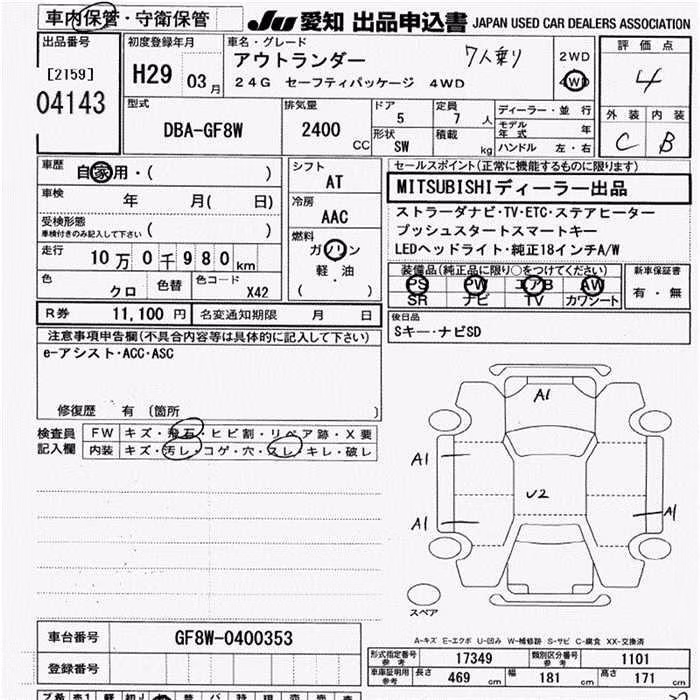 車内保管・守衛保管
JU 愛知 出品申込書 JAPAN USED CAR DEALERS ASSOCIATION
出品番号
[2159]
04143
初度登録年月
H29 03月
車名・グレード
アウトランダー 7人乗り
24G セーフティパッケージ 4WD
2WD
4WD
評価点
4
外装 内装
C B
型式
DBA-GF8W
排気量
2400 CC
ドア
5
定員
7 人
形状
SW
積載
kg
ディーラー・並 行
モデル年式 年
ハンドル 左・右
車歴
自家用・( )
車検
年 月( 日)
受検形態
車検付きのみ記入して下さい ( )
走行
10万0千980km
色
クロ
色替
色コード
X42
シフト
AT
冷房
AAC
燃料
ガソリン
軽・油
( )
R券 11,100円
名変通知期限 月 日
セールスポイント(正常に機能するものに限ります)
MITSUBISHIディーラー出品
ストラーダナビ・TV・ETC・ステアヒーター
プッシュスタートスマートキー
LEDヘッドライト・純正18インチA/W
装備品(純正品に限り○をつけてください)
PS PW エアB AW
SR ナビ TV カワシート
新車保証書
有・無
後日品
Sキー・ナビSD
注意事項申告欄(不具合内容等は具体的に記入して下さい)
e-アシスト・ACC・ASC
修復歴 有 〔箇所 〕
検査員記入欄
FW キズ・飛石・ヒビ割・リペア跡・X要
内装 キズ・汚レ・コゲ・穴・スレ・キレ・破レ
A1
A1
U2
A1
A1
スペア
A-キズ E-エクボ U-凹み W-補修跡 S-サビ C-腐食 XX-交換済
車台番号 GF8W-0400353
登録番号
形式指定番号 参考 17349
類別区分番号 参考 1101
車庫証明用 参考 長さ 469 cm 幅 181 cm 高さ 171 cm